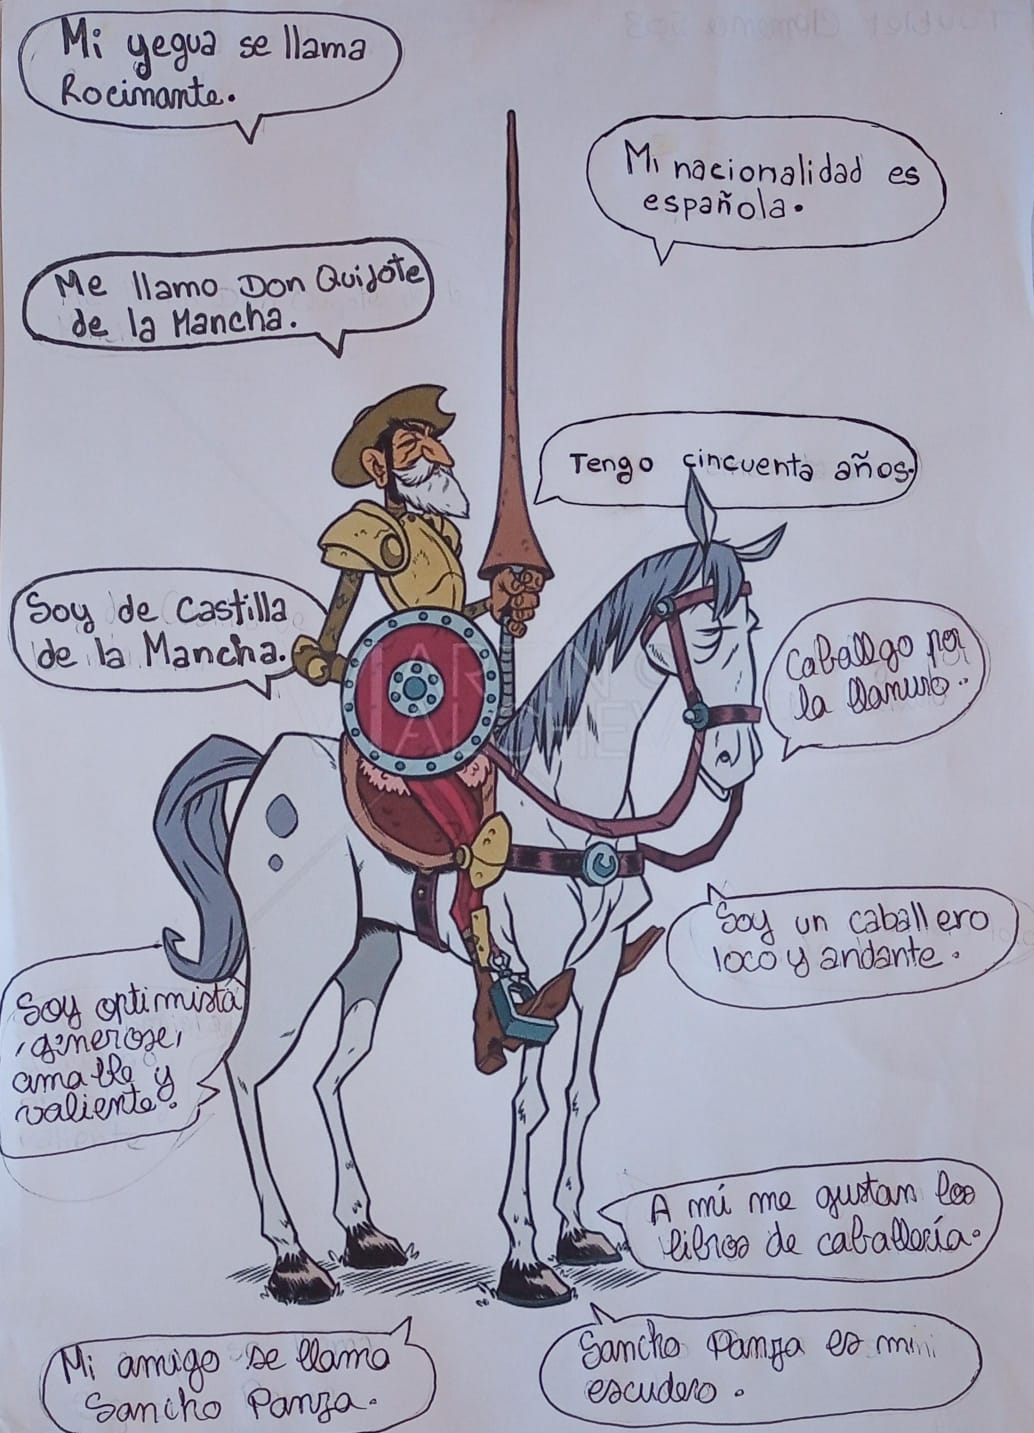 Mi yegua se llama
Rocinante.
Mi nacionalidad es
española.
Me llamo Don Quijote
de la Mancha.
Tengo cincuenta años.
Soy de Castilla
de la Mancha.
Caballgo por
la llanura.
Soy un caballero
loco y andante.
Soy optimista
, generose,
amable y
valiente.
A mí me gustan los
libros de caballería.
Mi amigo se llama
Sancho Panza.
Sancho Panza es mi
escudero.